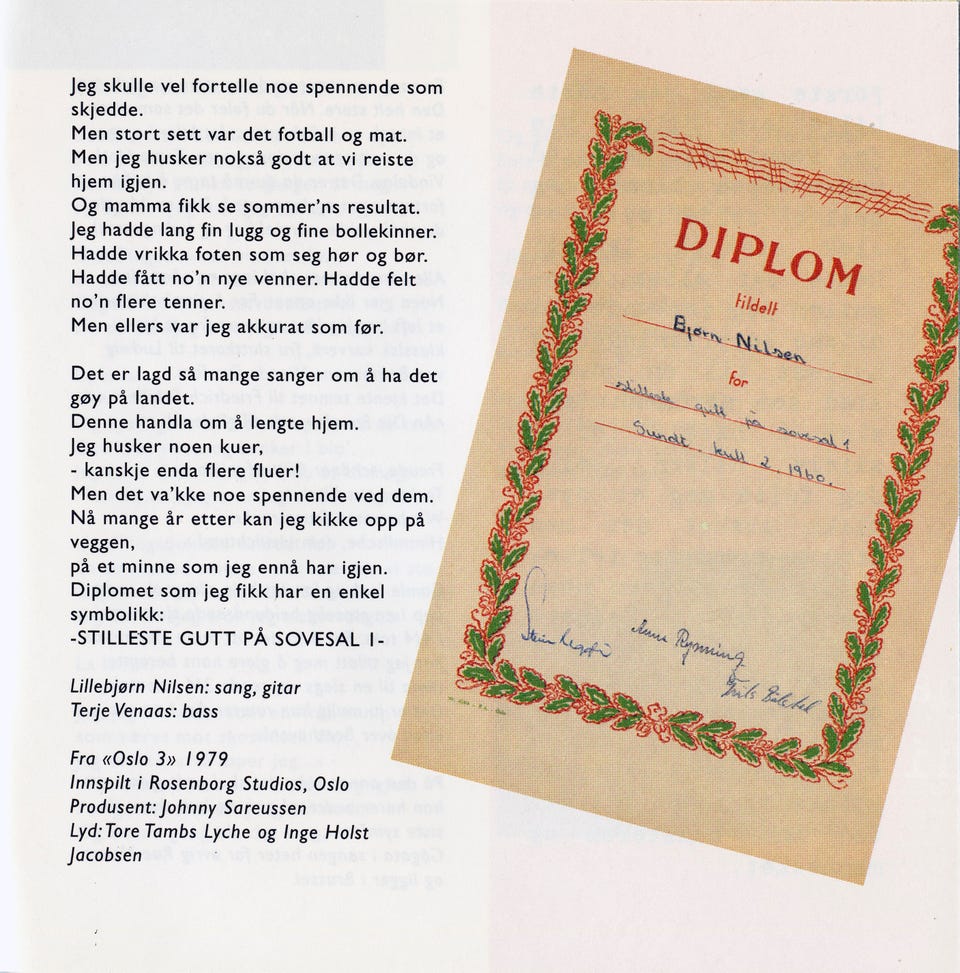 Jeg skulle vel fortelle noe spennende som
skjedde.
Men stort sett var det fotball og mat.
Men jeg husker nokså godt at vi reiste
hjem igjen.
Og mamma fikk se sommer'ns resultat.
Jeg hadde lang fin lugg og fine bollekinner.
Hadde vrikka foten som seg hør og bør.
Hadde fått no'n nye venner. Hadde felt
no'n flere tenner.
Men ellers var jeg akkurat som før.
Det er lagd så mange sanger om å ha det
gøy på landet.
Denne handla om å lengte hjem.
Jeg husker noen kuer,
- kanskje enda flere fluer!
Men det va'kke noe spennende ved dem.
Nå mange år etter kan jeg kikke opp på
veggen,
på et minne som jeg ennå har igjen.
Diplomet som jeg fikk har en enkel
symbolikk:
-STILLESTE GUTT PÅ SOVESAL I-
Lillebjørn Nilsen: sang, gitar
Terje Venaas: bass
Fra «Oslo 3» 1979
Innspilt i Rosenborg Studios, Oslo
Produsent: Johnny Sareussen
Lyd: Tore Tambs Lyche og Inge Holst
Jacobsen
DIPLOM
tildelt
Bjørn Nilsen
for
stilleste gutt på sovesal 1
Sundt, kull 2, 1960.
Stein
Anne Rynning
Frits